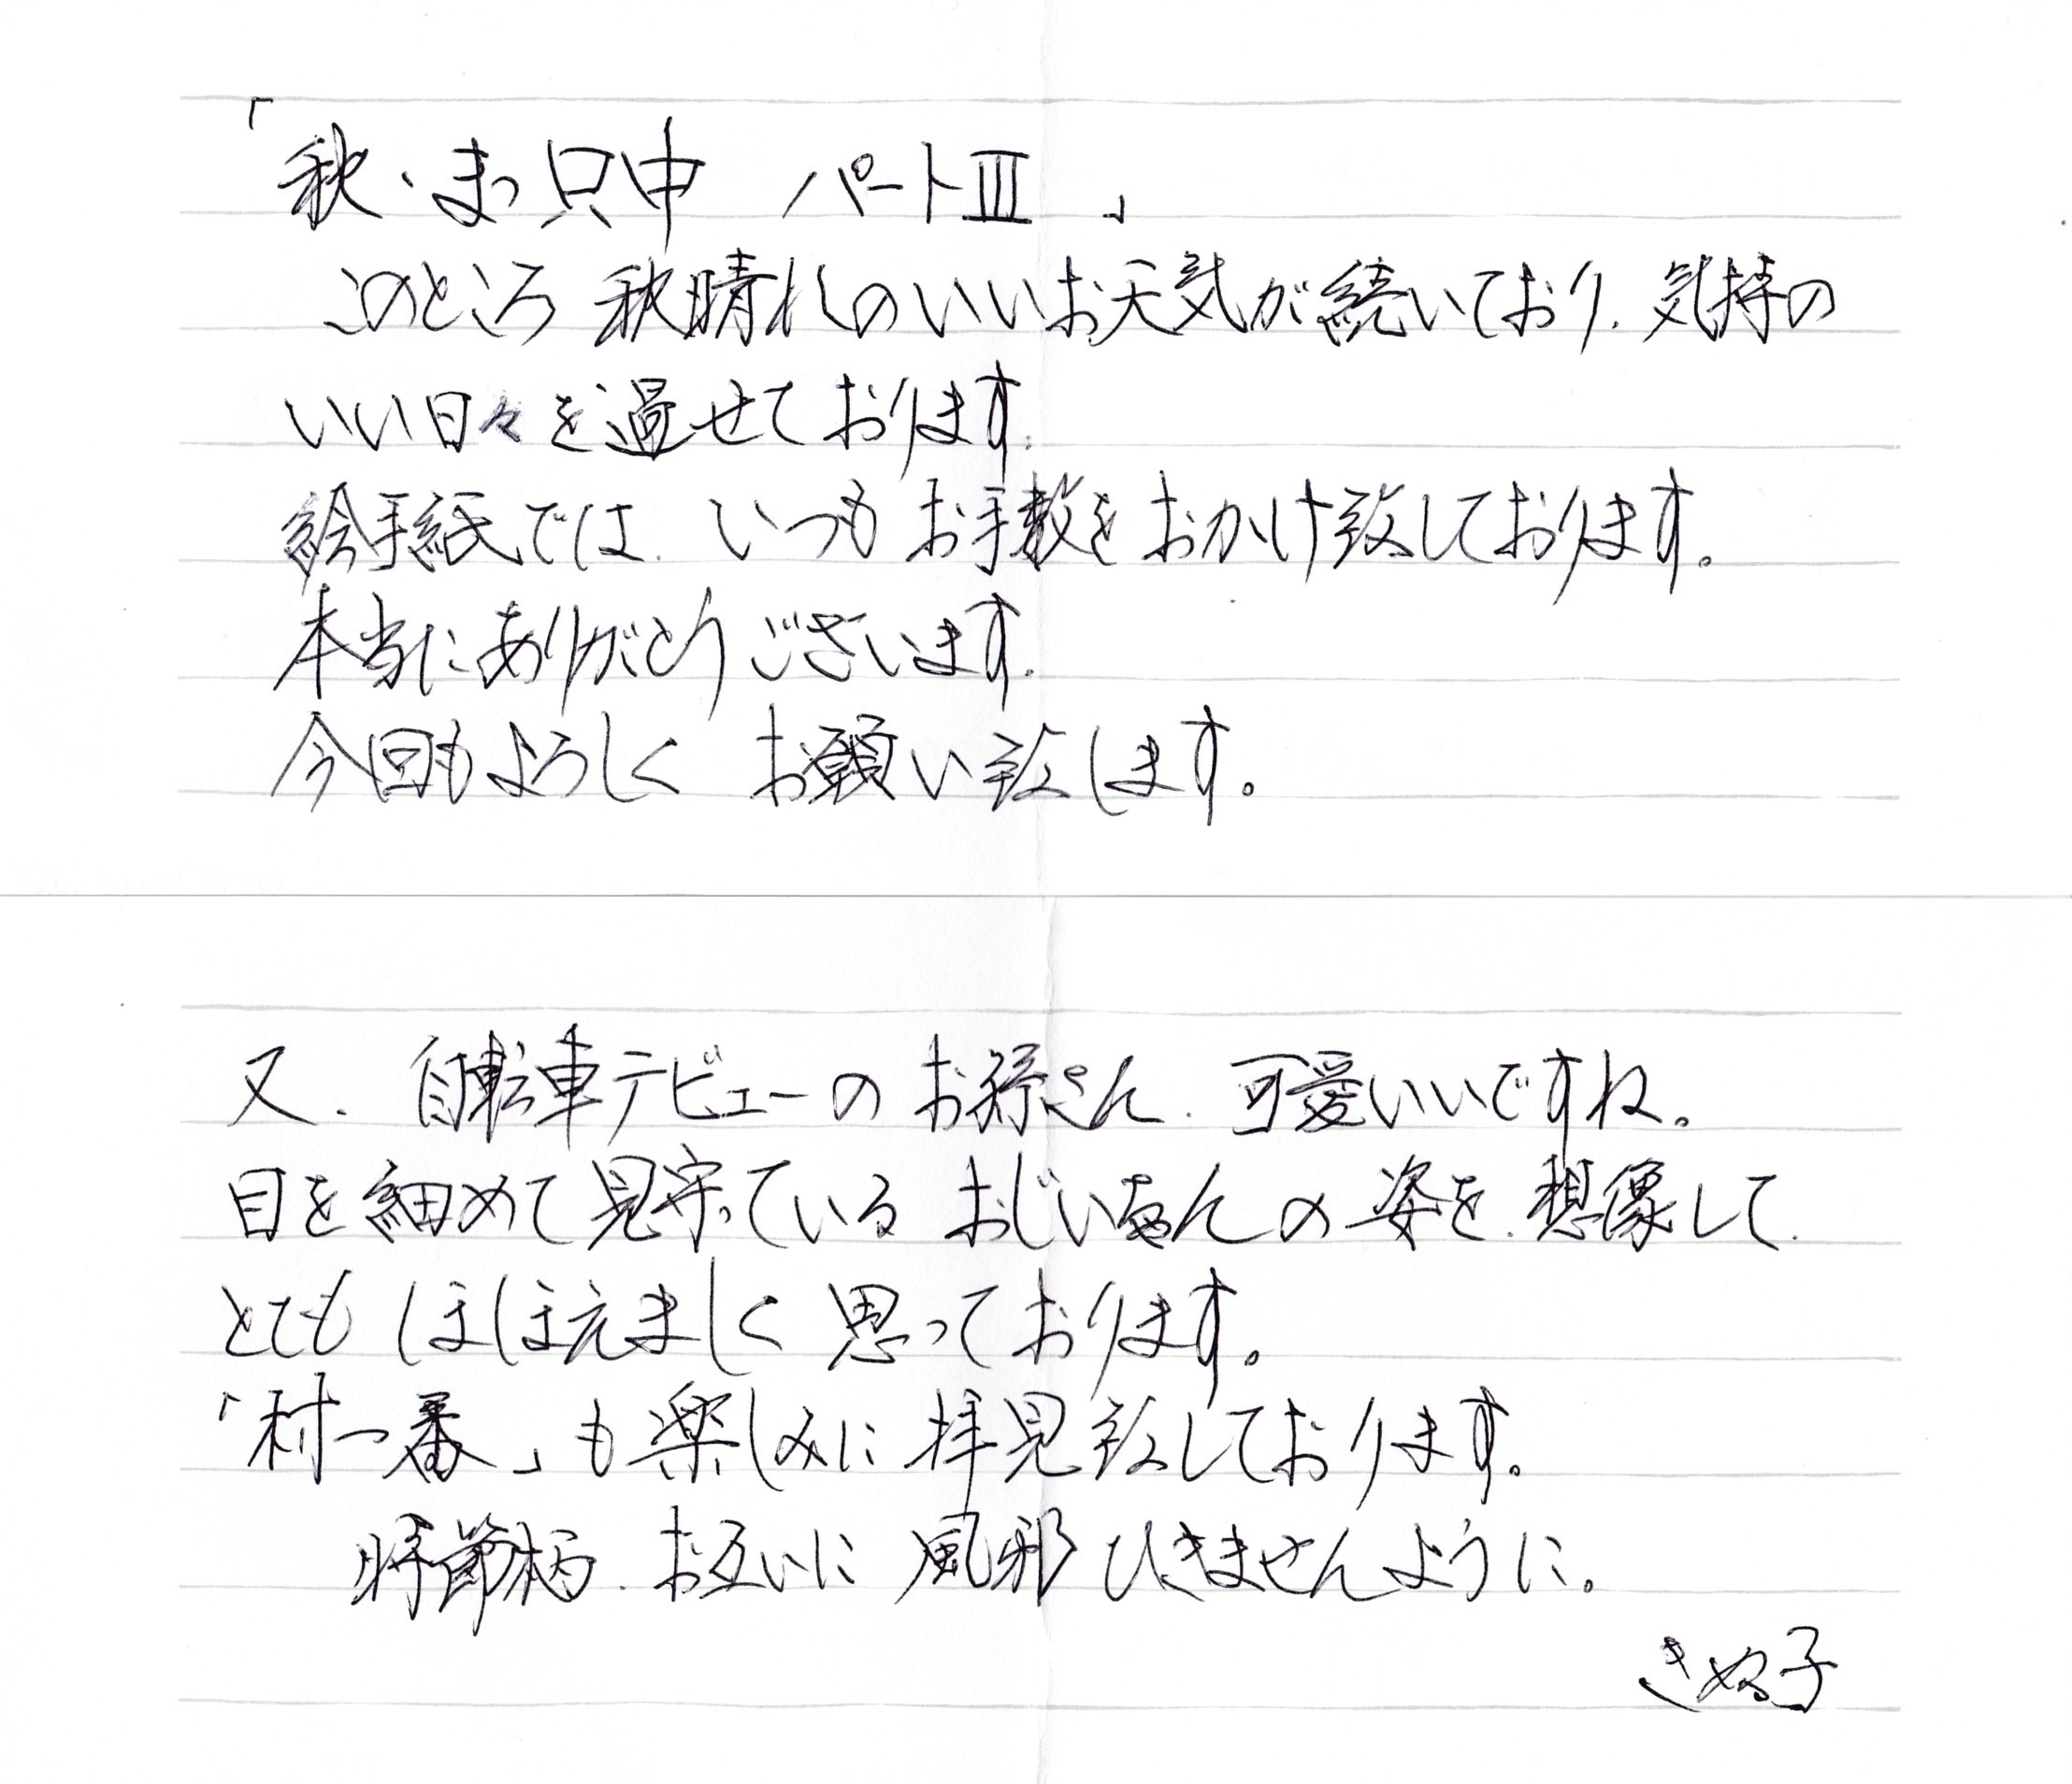 「秋・まっ只中　パートⅢ」
このところ 秋晴れのいいお天気が続いており、気持の
いい日々を過せております。
絵手紙では、いつも お手数をおかけ致しております。
本当にありがとう ございます。
今回もよろしく お願い致します。
又、自転車デビューの お孫さん、可愛いいですね。
目を細めて見守っている おじいちゃんの姿を、想像して、
とても ほほえましく 思っております。
「村一番」も楽しみに 拝見致しております。
時節柄、お互いに 風邪 ひきませんように。
きぬ子